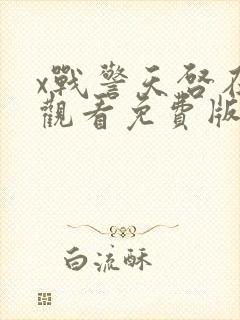 x戰警天啓在
觀看免費版
白流酥